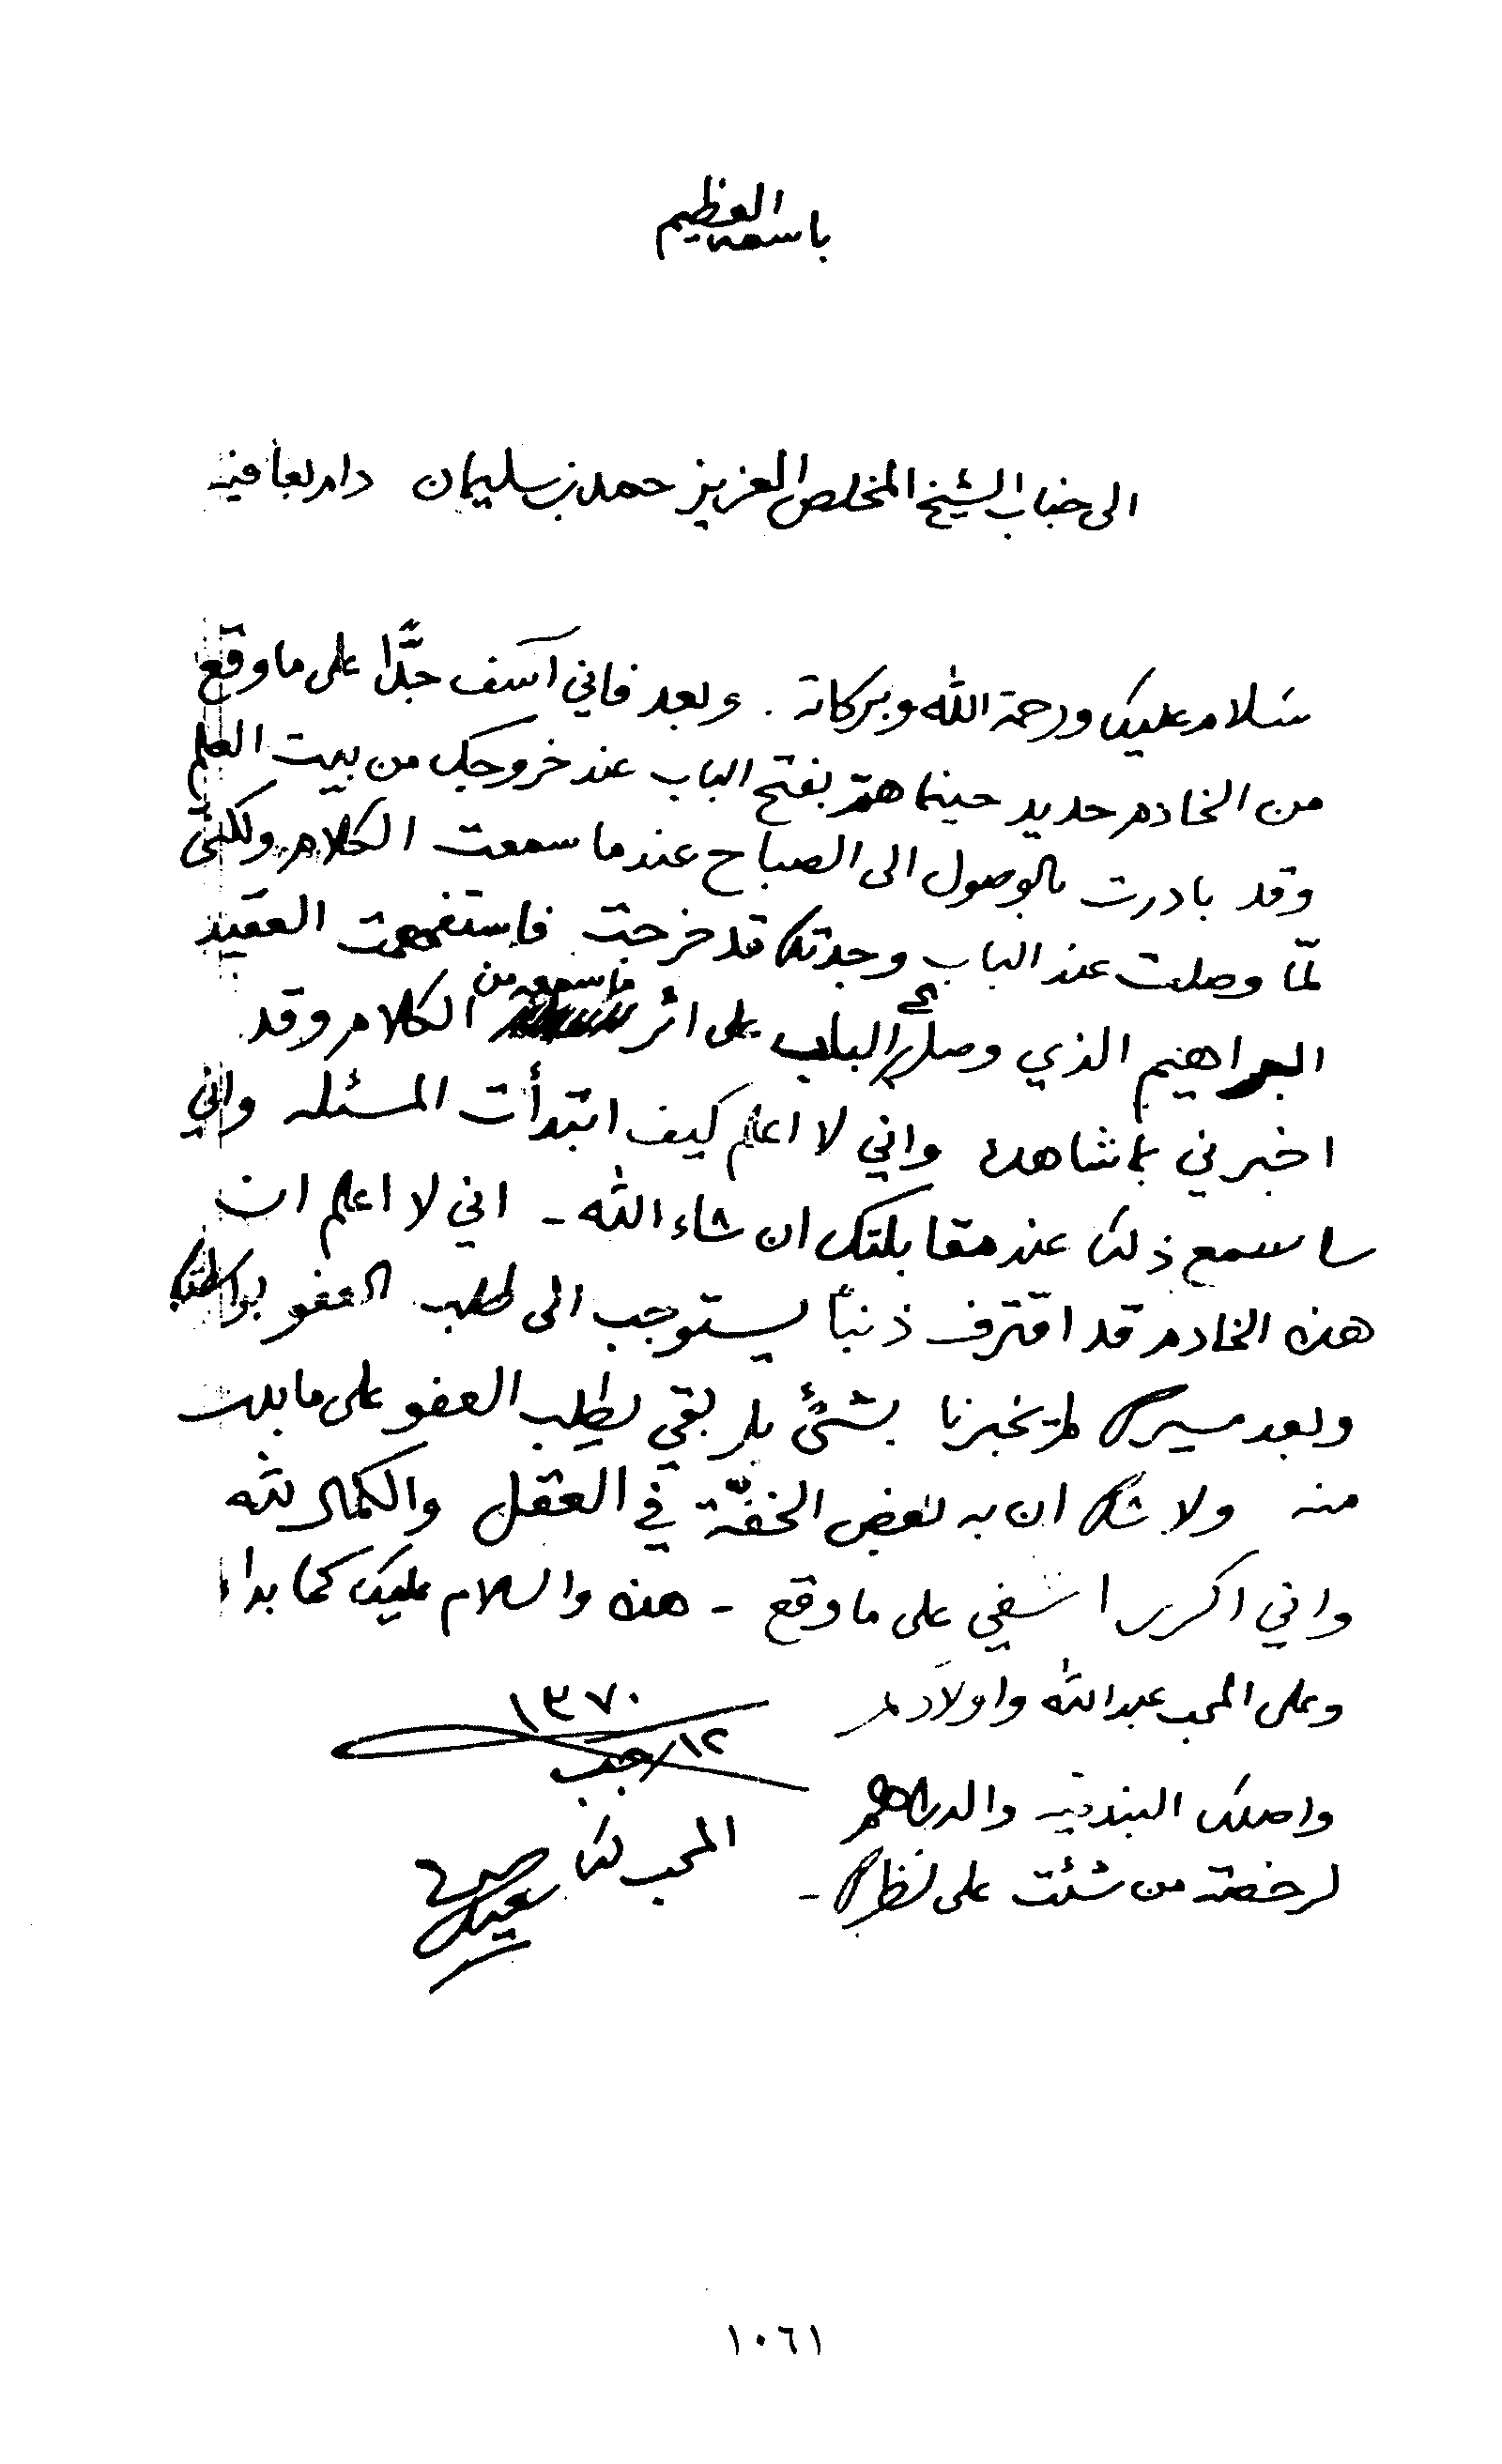 باسمه العظيم
الى جناب الشيخ المخلص العزيز حمد بن سليمان دام بعافيه
سلام عليك ورحمة الله وبركاته . وبعد فاني آسف جدًّا على ما وقع
من الخادم حديد حينما همّ بفتح الباب عند خروجك من بيت العلم
وقد بادرت بالوصول الى الصباح عندما سمعت الكلام ولكنّي
لمّا وصلت عند الباب وجدتك قد خرجت فاستفهمت العقيد
ابراهيم الذي وصل الباب على اثر ما سمعه من الكلام وقد
اخبرني بما شاهده واني لا اعلم كيف ابتدأت المسئله واني
ساسمع ذلك عند مقابلتك ان شاء الله - اني لا اعلم ان
هذه الخادم قد اقترف ذنبًا يستوجب الى طلب العفو
وبعد مسيرك لم يخبرنا بشئ بل بقي يطلب العفو على ما بدت
منه ولا شك ان به بعض الخفّة في العقل والكمال لله
واني اكرر اسفي على ما وقع - هذه والسلام عليك كما بداء
وعلى المحب عبدالله واولادكم
١٣٧٠
١٢/رجب
واصلك البندقيه والدراهم
المحب لك
لرخصة من شئت على نظرك -
سعيد
١٠٦١